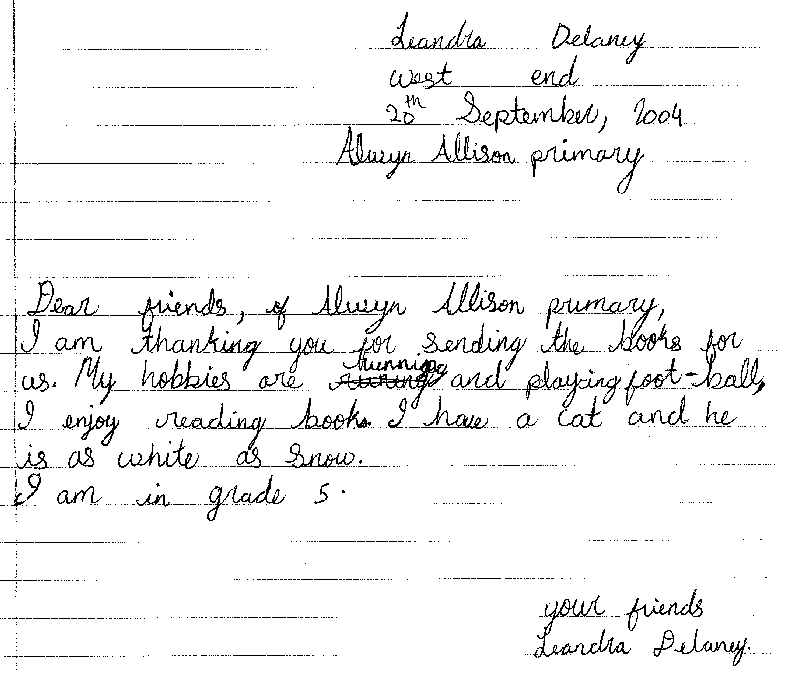 Leandra Delaney
West end
20th September, 2004
Alwyn Allison primary
Dear friends, of Alwyn Allison primary,
I am thanking you for sending the books for
us. My hobbies are running and playing foot-ball,
I enjoy reading books. I have a cat and he
is as white as snow.
I am in grade 5.
your friends
Leandra Delaney.